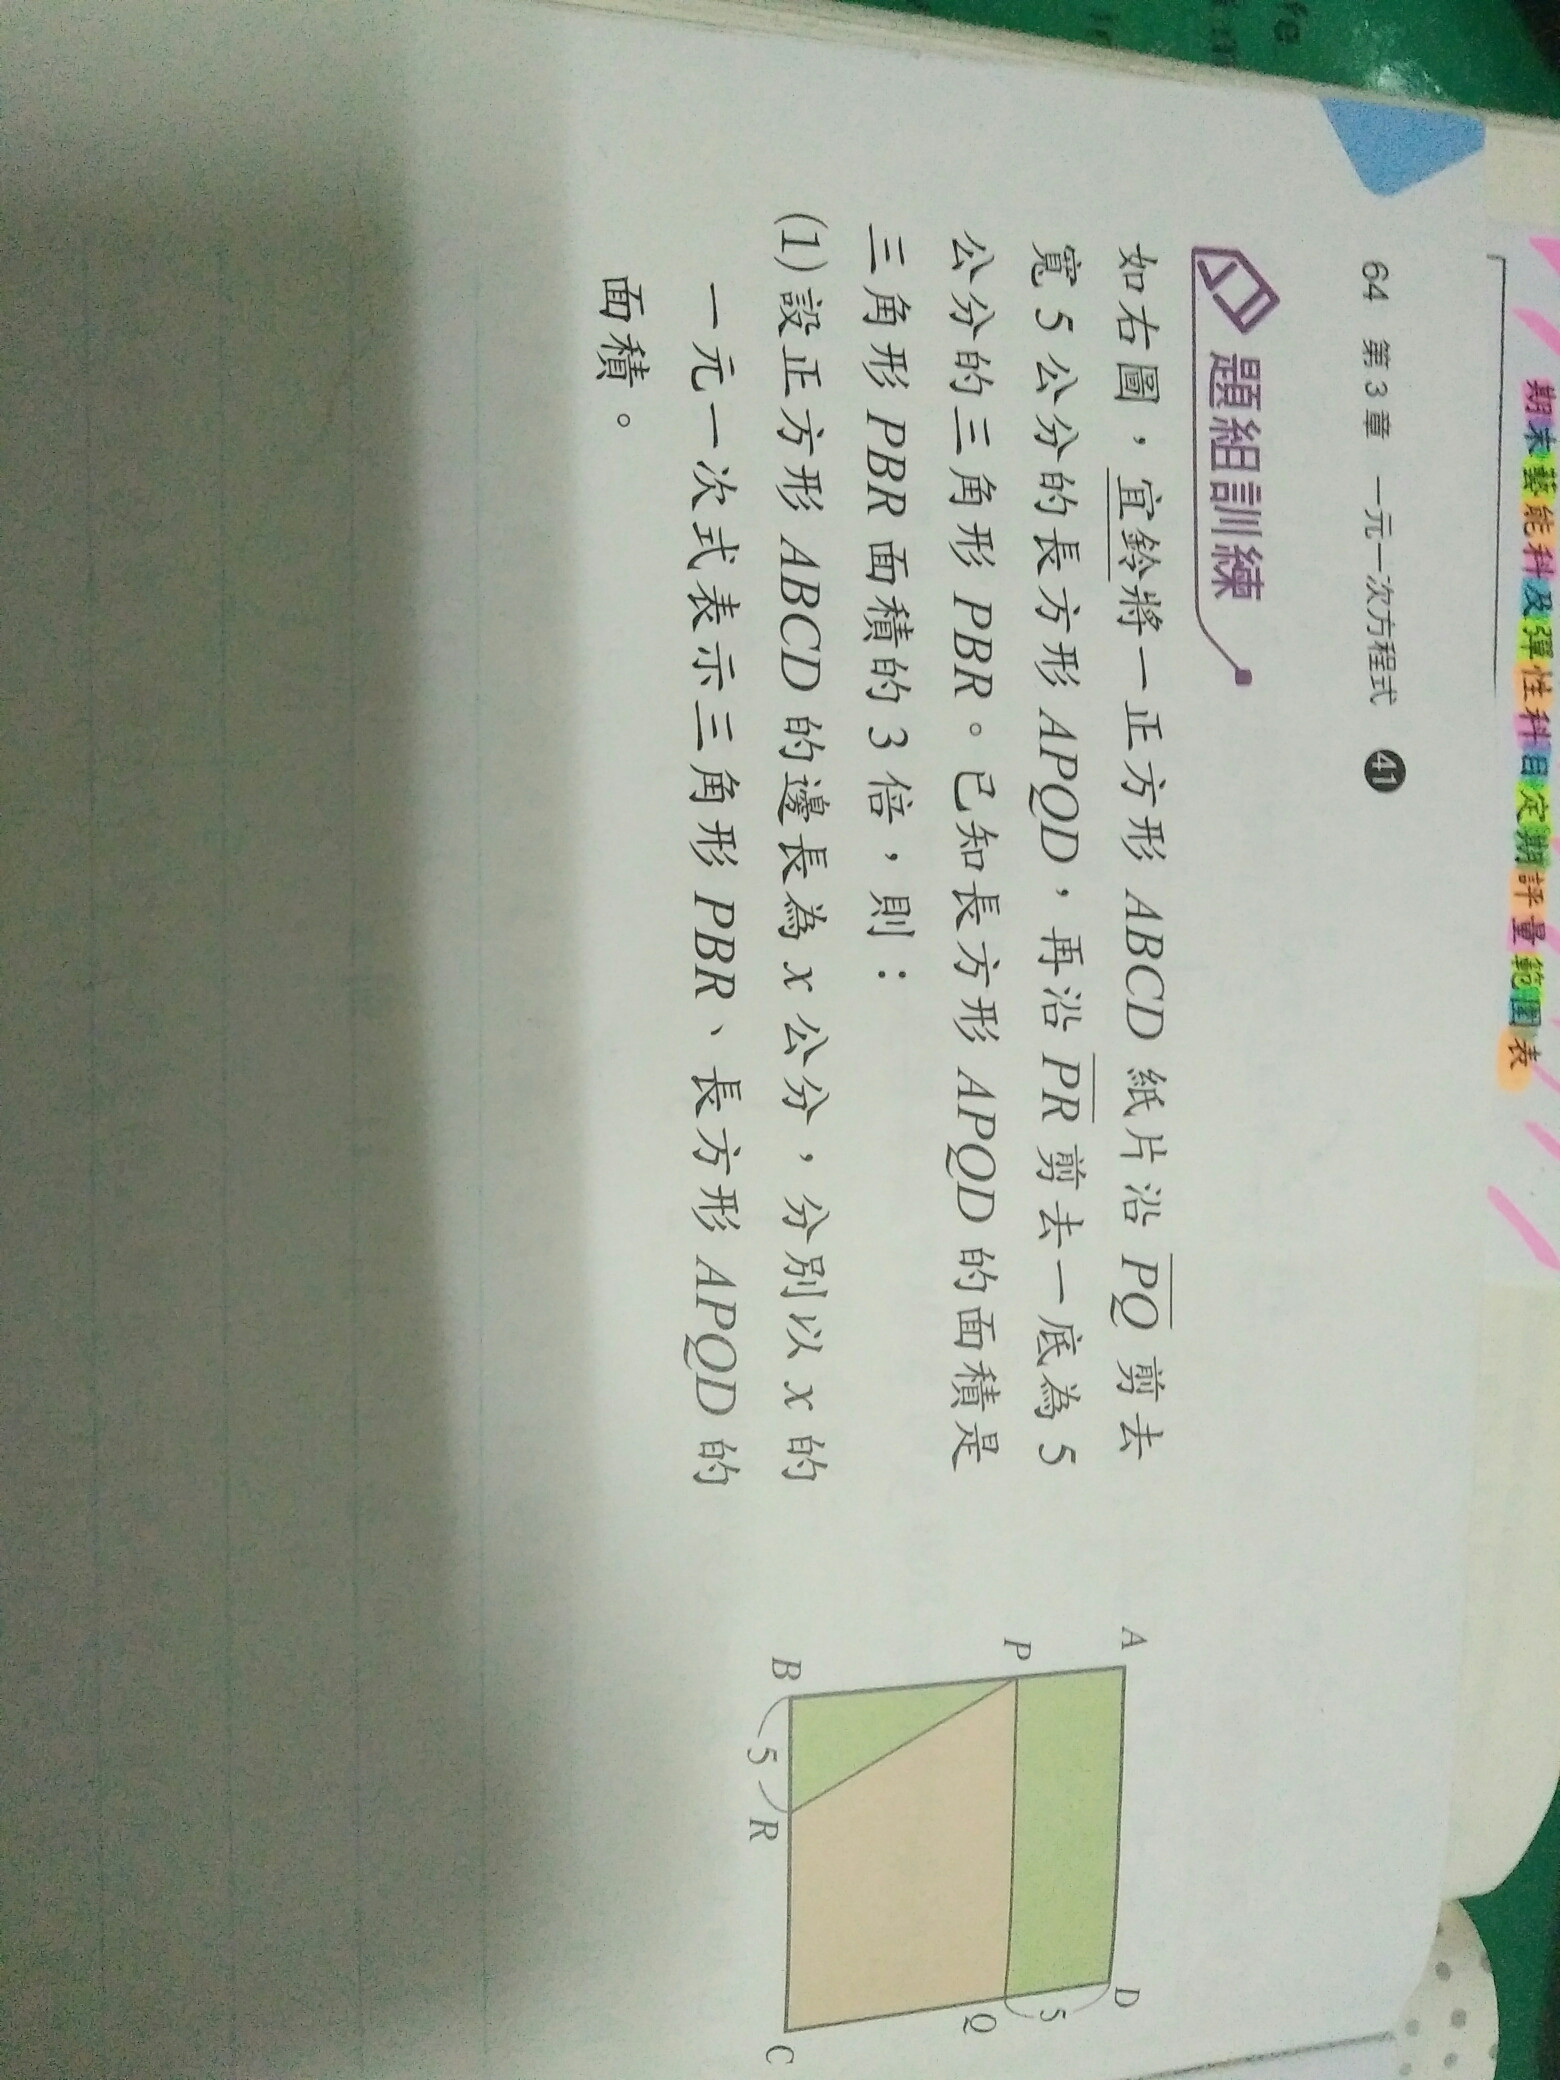 期末藝能科及彈性科目定期評量範圍表
64 第3章 一元一次方程式 41
題組訓練
如右圖，宜鈴將一正方形 ABCD 紙片沿 PQ 剪去
寬 5 公分的長方形 APQD，再沿 PR 剪去一底為 5
公分的三角形 PBR。已知長方形 APQD 的面積是
三角形 PBR 面積的 3 倍，則：
(1)設正方形 ABCD 的邊長為 x 公分，分別以 x 的
一元一次式表示三角形 PBR、長方形 APQD 的
面積。
A
D
5
P
Q
B
5
R
C